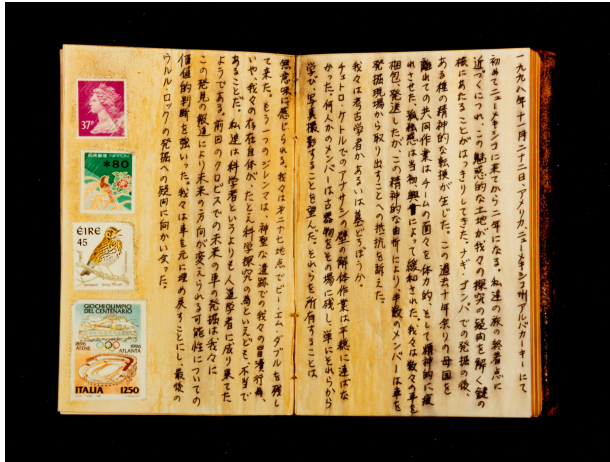 一九九八年十一月二十二日、アメリカ、ニューメキシコ州アルバカーキーにて
初めてニューメキシコに来てから二年になる。私達の旅の終着点に
近づくにつれ、この魅惑的な土地が我々の探究の疑問を解く鍵の
様にあたることがはっきりしてきた。ナギ、ゴンパでの発掘の後、
ある種の精神的な転換が生じた。この過去十年余りの母国を
離れての共同作業はチームの面々を体力的、そして精神的に疲
れさせた。孤独感は当初、興奮によって緩和された。我々は数々の車を
梱包発送したが、この精神的な曲折により、半数のメンバーは車を
発掘現場から取り出すことへの抵抗を訴えた。
我々は考古学者かあるいは墓どろぼうか。
チェトロ・ケトルでのアナサジの壁の解体作業は平穏に運ばな
かった。何人かのメンバーは古器物をその場に残し、単にそれらから
学び、写真撮影することを望んだ。それらを所有することは
無意味に感じられる。我々は第二十七地点でビー・エム、ダブルを残し
て来た。もう一つのジレンマは、神聖な遺跡での我々の冒瀆行為、
いや、我々の存在自体が、たとえ科学探究の為といえども、不当で
あることだ。私達は科学者というよりも人道学者に成り果てた
ようである。前回のクロビスでの未来の車の発掘は我々に
この発見の報道により未来の方向が変えられる可能性についての
価値的判断を強いた。我々は車を元に埋め戻すことにし、最後の
ウルル・ロックの発掘への疑問に向かい立った。
37P
NIPPON
80
ÉIRE
45
GIOCHI OLIMPICI
DEL CENTENARIO
1896
ATENE
1996
ATLANTA
ITALIA 1250